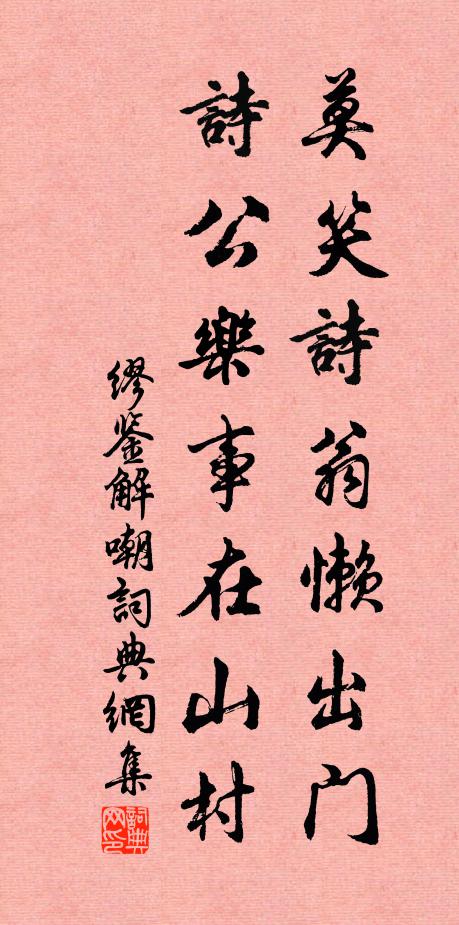 莫笑詩翁懶出門
詩公樂事在山村
繆鉴解嘲詞典網集
詞典网印